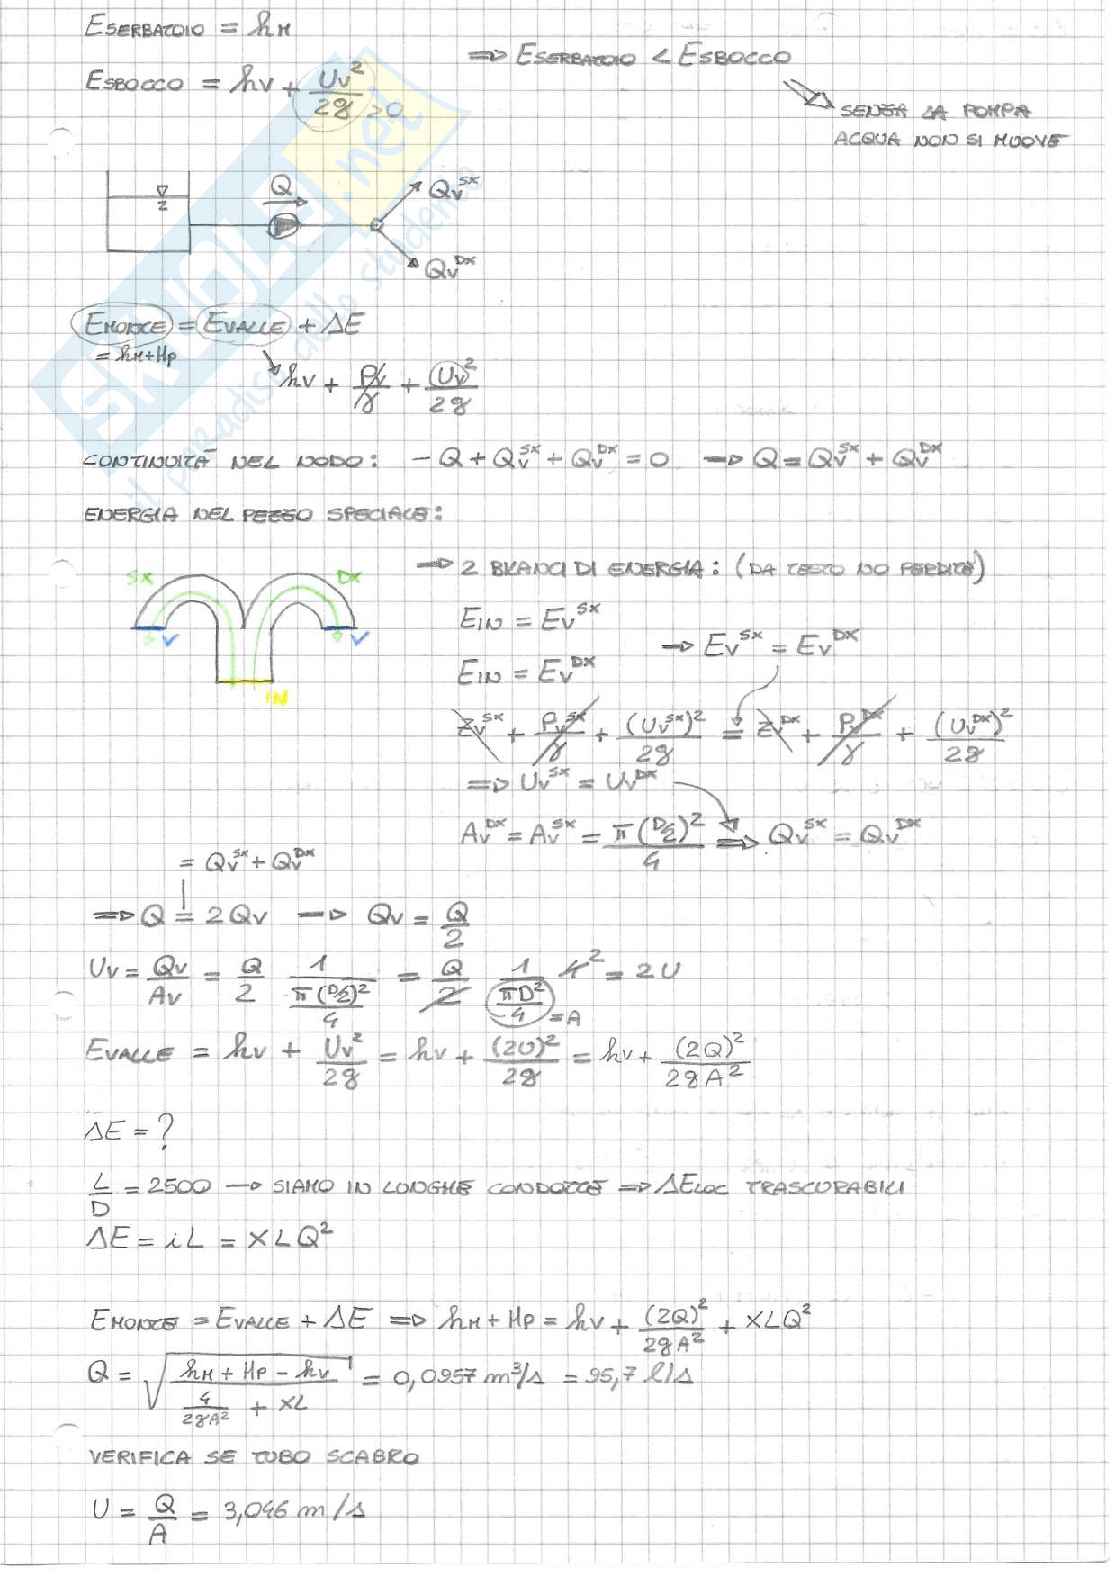 ESERBATOIO = hM
ESBOCCO = hv + Uv²/2g >0
⇒ ESERBATOIO < ESBOCCO
SENZA LA POMPA
ACQUA NON SI MUOVE
SKUOLA.net
il paradiso dello studente
Q
Qv^SX
Qv^DX
EMONTE = EVALLE + ΔE
= hM+Hp
hv + pv/γ + (Uv)²/2g
CONTINUITÀ NEL NODO: -Q + Qv^SX + Qv^DX = 0 ⇒ Q = Qv^SX + Qv^DX
ENERGIA NEL PEZZO SPECIALE:
→ 2 BILANCI DI ENERGIA: (DA TESTO NO PERDITE)
SX
DX
V
V
IN
EIN = Ev^SX
EIN = Ev^DX
→ Ev^SX = Ev^DX
zv^SX + pv^SX/γ + (Uv^SX)²/2g = zv^DX + pv^DX/γ + (Uv^DX)²/2g
⇒ Uv^SX = Uv^DX
Av^DX = Av^SX = π(D/2)²/4 ⇒ Qv^SX = Qv^DX
= Qv^SX + Qv^DX
⇒ Q = 2Qv → Qv = Q/2
Uv = Qv/Av = Q/2 1/(π(D/2)²/4) = Q/2 1/(πD²/4) 4² = 2U
= A
EVALLE = hv + Uv²/2g = hv + (2U)²/2g = hv + (2Q)²/2gA²
ΔE = ?
L/D = 2500 → SIAMO IN LUNGHE CONDOTTE ⇒ ΔELOC TRASCURABILI
ΔE = iL = XLQ²
EMONTE = EVALLE + ΔE ⇒ hM + Hp = hv + (2Q)²/2gA² + XLQ²
Q = √((hM + Hp - hv)/(4/2gA² + XL)) = 0,0957 m³/s = 95,7 l/s
VERIFICA SE TUBO SCABRO
U = Q/A = 3,046 m/s